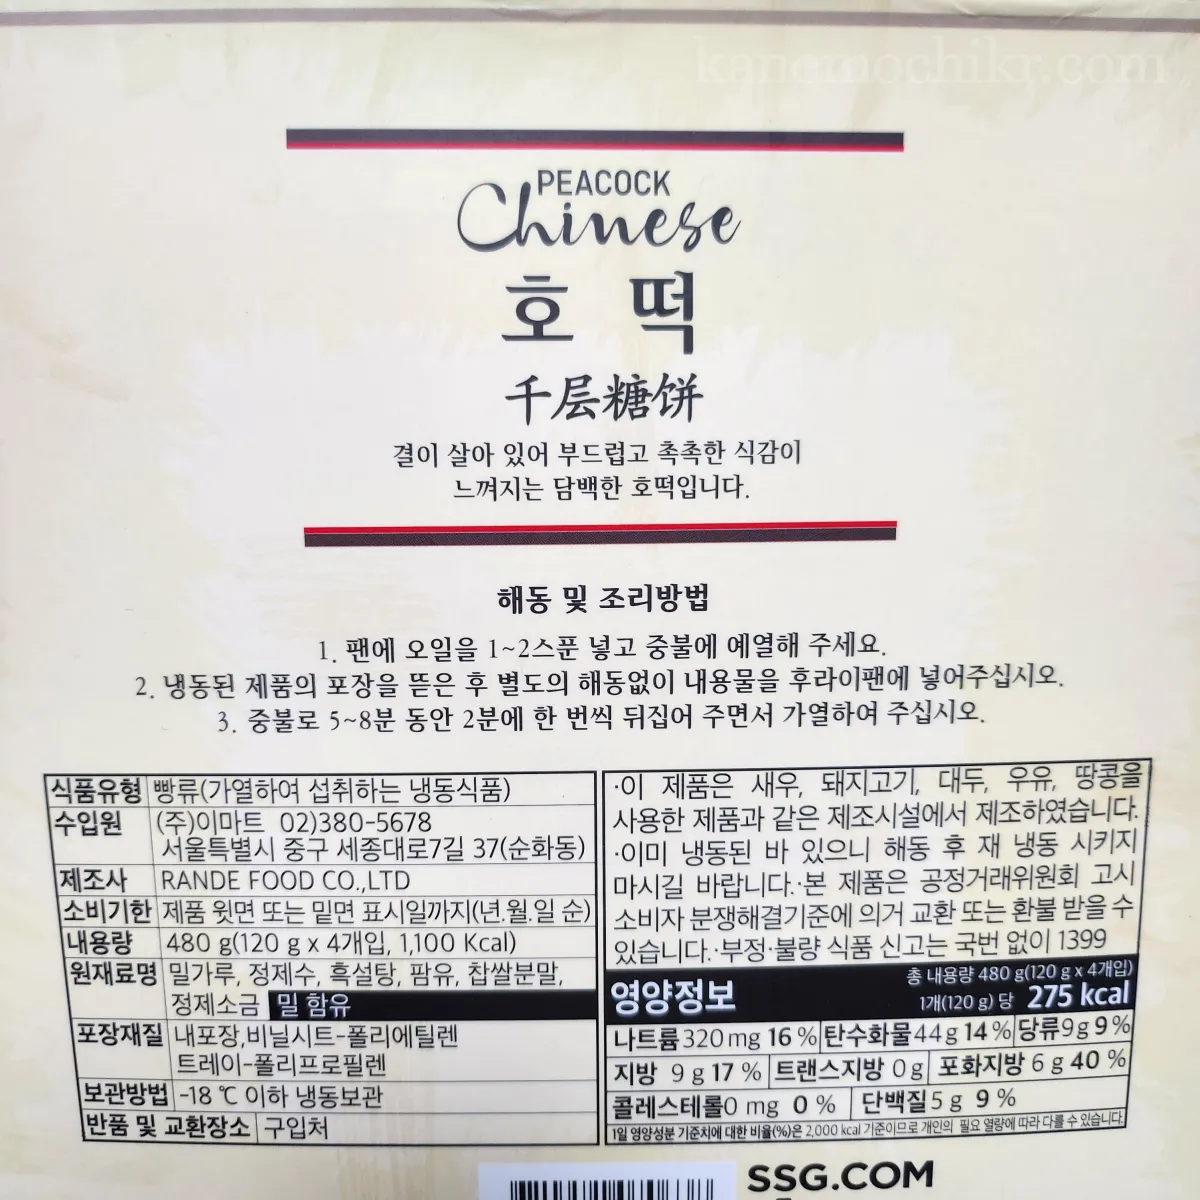 kanemochikr.com
PEACOCK
Chinese
호떡
千层糖饼
결이 살아 있어 부드럽고 촉촉한 식감이
느껴지는 담백한 호떡입니다.
해동 및 조리방법
1. 팬에 오일을 1~2스푼 넣고 중불에 예열해 주세요.
2. 냉동된 제품의 포장을 뜯은 후 별도의 해동없이 내용물을 후라이팬에 넣어주십시오.
3. 중불로 5~8분 동안 2분에 한 번씩 뒤집어 주면서 가열하여 주십시오.
식품유형 빵류(가열하여 섭취하는 냉동식품)
수입원 (주)이마트 02)380-5678
서울특별시 중구 세종대로7길 37(순화동)
제조사 RANDE FOOD CO.,LTD
소비기한 제품 윗면 또는 밑면 표시일까지(년.월.일 순)
내용량 480 g(120 g x 4개입, 1,100 Kcal)
원재료명 밀가루, 정제수, 흑설탕, 팜유, 찹쌀분말,
정제소금 밀 함유
포장재질 내포장,비닐시트-폴리에틸렌
트레이-폴리프로필렌
보관방법 -18 ℃ 이하 냉동보관
반품 및 교환장소 구입처
·이 제품은 새우, 돼지고기, 대두, 우유, 땅콩을
사용한 제품과 같은 제조시설에서 제조하였습니다.
·이미 냉동된 바 있으니 해동 후 재 냉동 시키지
마시길 바랍니다.·본 제품은 공정거래위원회 고시
소비자 분쟁해결기준에 의거 교환 또는 환불 받을 수
있습니다.·부정·불량 식품 신고는 국번 없이 1399
영양정보
총 내용량 480 g(120 g x 4개입)
1개(120 g) 당 275 kcal
나트륨 320 mg 16 % 탄수화물 44 g 14 % 당류 9 g 9 %
지방 9 g 17 % 트랜스지방 0 g 포화지방 6 g 40 %
콜레스테롤 0 mg 0 % 단백질 5 g 9 %
1일 영양성분 기준치에 대한 비율(%)은 2,000 kcal 기준이므로 개인의 필요 열량에 따라 다를 수 있습니다.
SSG.COM